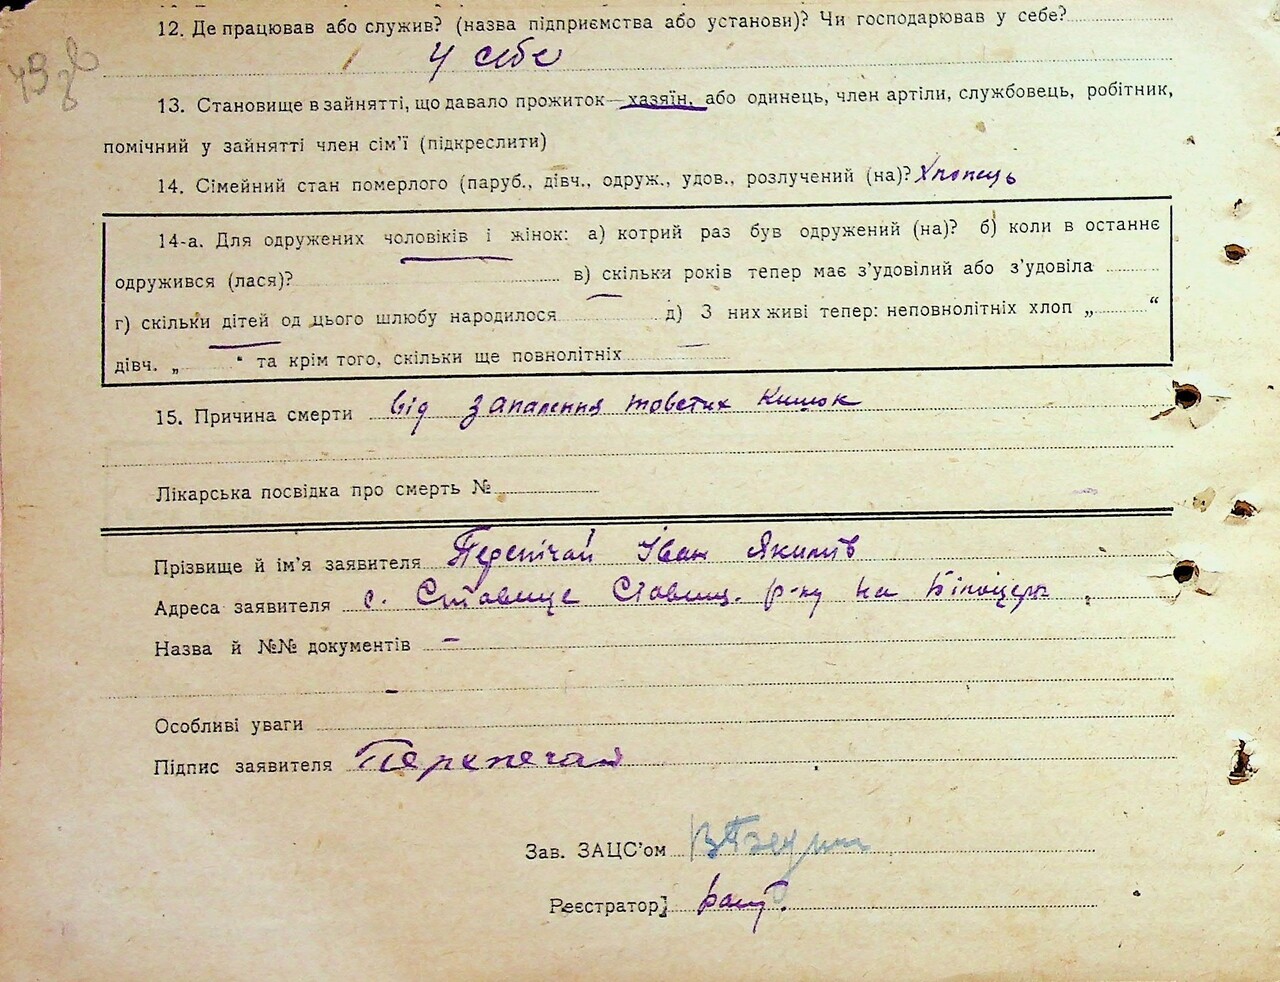 49 зв
12. Де працював або служив? (назва підприємства або установи)? Чи господарював у себе?
У себе
13. Становище в зайнятті, що давало прожиток—хазяїн, або одинець, член артіли, службовець, робітник,
помічний у зайнятті член сім'ї (підкреслити)
14. Сімейний стан померлого (паруб., дівч., одруж., удов., розлучений (на)? Хлопець
14-а. Для одружених чоловіків і жінок: а) котрий раз був одружений (на)? б) коли в останнє
одружився (лася)? в) скільки років тепер має з'удовілий або з'удовіла
г) скільки дітей од цього шлюбу народилося д) З них живі тепер: неповнолітніх хлоп „ “
дівч. „ “ та крім того, скільки ще повнолітніх
15. Причина смерти від запалення товстих кишок
Лікарська посвідка про смерть №
Прізвище й ім'я заявителя Перепічай Іван Якимів
Адреса заявителя с. Ставище Ставищ. р-ну на Білоцерк
Назва й №№ документів —
Особливі уваги
Підпис заявителя Перепечай
Зав. ЗАЦС'ом
Реєстратор